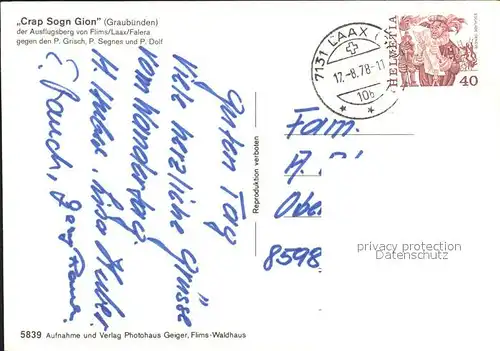 „Crap Sogn Gion" (Graubünden)
der Ausflugsberg von Flims/Laax/Falera
gegen den P. Grisch, P. Segnes und P. Dolf
7131 LAAX (
17.-8.78-11
10b
HELVETIA
40
Guten Tag
Viele herzliche Grüsse
vom Wandertag.
H. Huber, Lisa Huber
E. Rauch,
Reproduktion verboten
Fam.
Obe
8598
privacy protection
Datenschutz
5839 Aufnahme und Verlag Photohaus Geiger, Flims-Waldhaus